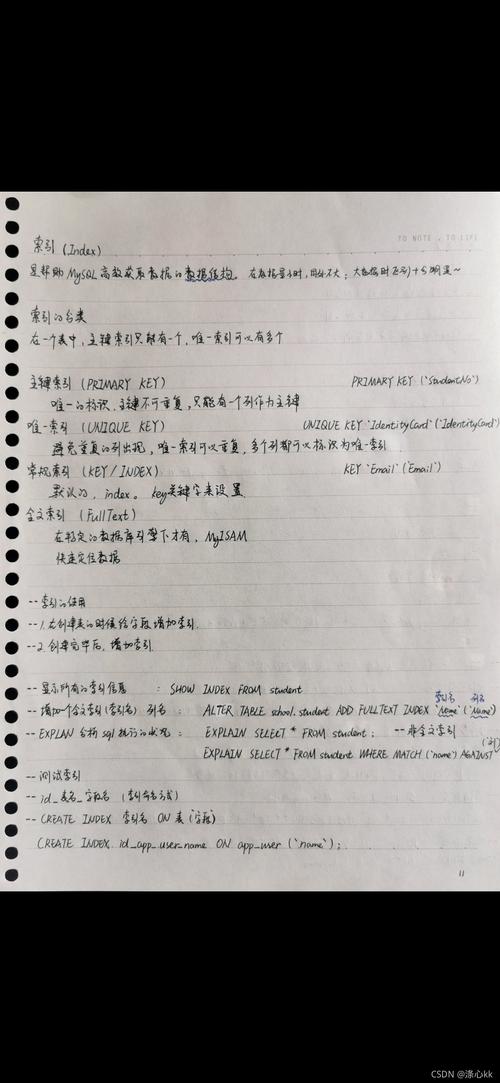 TO NOTE , TO LIFE
索引 (Index)
是帮助MySQL高效获取数据的数据结构。在数据量小时,用处不大;大数据时区别十分明显~
索引的分类
在一个表中,主键索引只能有一个,唯一索引可以有多个
主键索引 (PRIMARY KEY) PRIMARY KEY (`StudentNo`)
唯一的标识,主键不可重复,只能有一个列作为主键
唯一索引 (UNIQUE KEY) UNIQUE KEY `IdentityCard` (`IdentityCard`
避免重复的列出现,唯一索引可以重复,多个列都可以标识为唯一索引
常规索引 (KEY / INDEX) KEY `Email` (`Email`)
默认的, index。key关键字来设置
全文索引 (FullText)
在特定的数据库引擎下才有, MyISAM
快速定位数据
-- 索引的使用
-- 1.在创建表的时候给字段增加索引.
-- 2.创建完毕后,增加索引
-- 显示所有的索引信息 : SHOW INDEX FROM student
索引名 列名
-- 增加一个全文索引(索引名) 列名 : ALTER TABLE school.student ADD FULLTEXT INDEX `Name` (`Name`)
-- EXPLAN 分析 sql 执行的状况 : EXPLAIN SELECT * FROM student ; -- 非全文索引
EXPLAIN SELECT * FROM student WHERE MATCH (`name`) AGAINST
-- 测试索引
-- id_表名_字段名 (索引命名方式)
-- CREATE INDEX 索引名 ON 表(字段)
CREATE INDEX id_app_user_name ON app_user (`name`);
11
CSDN @涤心kk